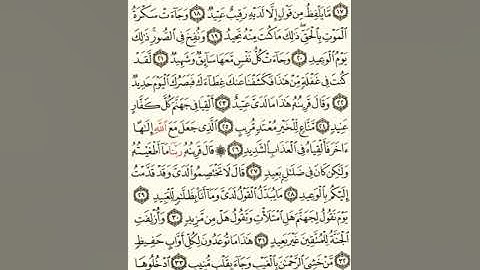 ﴿١٧﴾ مَّا يَلْفِظُ مِن قَوْلٍ إِلَّا لَدَيْهِ رَقِيبٌ عَتِيدٌ ﴿١٨﴾ وَجَآءَتْ سَكْرَةُ
ٱلْمَوْتِ بِٱلْحَقِّ ذَٰلِكَ مَا كُنتَ مِنْهُ تَحِيدُ ﴿١٩﴾ وَنُفِخَ فِى ٱلصُّورِ ذَٰلِكَ
يَوْمُ ٱلْوَعِيدِ ﴿٢٠﴾ وَجَآءَتْ كُلُّ نَفْسٍ مَّعَهَا سَآئِقٌ وَشَهِيدٌ ﴿٢١﴾ لَّقَدْ
كُنتَ فِى غَفْلَةٍ مِّنْ هَٰذَا فَكَشَفْنَا عَنكَ غِطَآءَكَ فَبَصَرُكَ ٱلْيَوْمَ حَدِيدٌ
﴿٢٢﴾ وَقَالَ قَرِينُهُۥ هَٰذَا مَا لَدَىَّ عَتِيدٌ ﴿٢٣﴾ أَلْقِيَا فِى جَهَنَّمَ كُلَّ كَفَّارٍ
عَنِيدٍ ﴿٢٤﴾ مَّنَّاعٍ لِّلْخَيْرِ مُعْتَدٍ مُّرِيبٍ ﴿٢٥﴾ ٱلَّذِى جَعَلَ مَعَ ٱللَّهِ إِلَٰهًا
ءَاخَرَ فَأَلْقِيَاهُ فِى ٱلْعَذَابِ ٱلشَّدِيدِ ﴿٢٦﴾ ۞ قَالَ قَرِينُهُۥ رَبَّنَا مَآ أَطْغَيْتُهُۥ
وَلَٰكِن كَانَ فِى ضَلَٰلٍۭ بَعِيدٍ ﴿٢٧﴾ قَالَ لَا تَخْتَصِمُوا۟ لَدَىَّ وَقَدْ قَدَّمْتُ
إِلَيْكُم بِٱلْوَعِيدِ ﴿٢٨﴾ مَا يُبَدَّلُ ٱلْقَوْلُ لَدَىَّ وَمَآ أَنَا۠ بِظَلَّٰمٍ لِّلْعَبِيدِ ﴿٢٩﴾
يَوْمَ نَقُولُ لِجَهَنَّمَ هَلِ ٱمْتَلَأْتِ وَتَقُولُ هَلْ مِن مَّزِيدٍ ﴿٣٠﴾ وَأُزْلِفَتِ
ٱلْجَنَّةُ لِلْمُتَّقِينَ غَيْرَ بَعِيدٍ ﴿٣١﴾ هَٰذَا مَا تُوعَدُونَ لِكُلِّ أَوَّابٍ حَفِيظٍ
﴿٣٢﴾ مَّنْ خَشِىَ ٱلرَّحْمَٰنَ بِٱلْغَيْبِ وَجَآءَ بِقَلْبٍ مُّنِيبٍ ﴿٣٣﴾ ٱدْخُلُوهَا